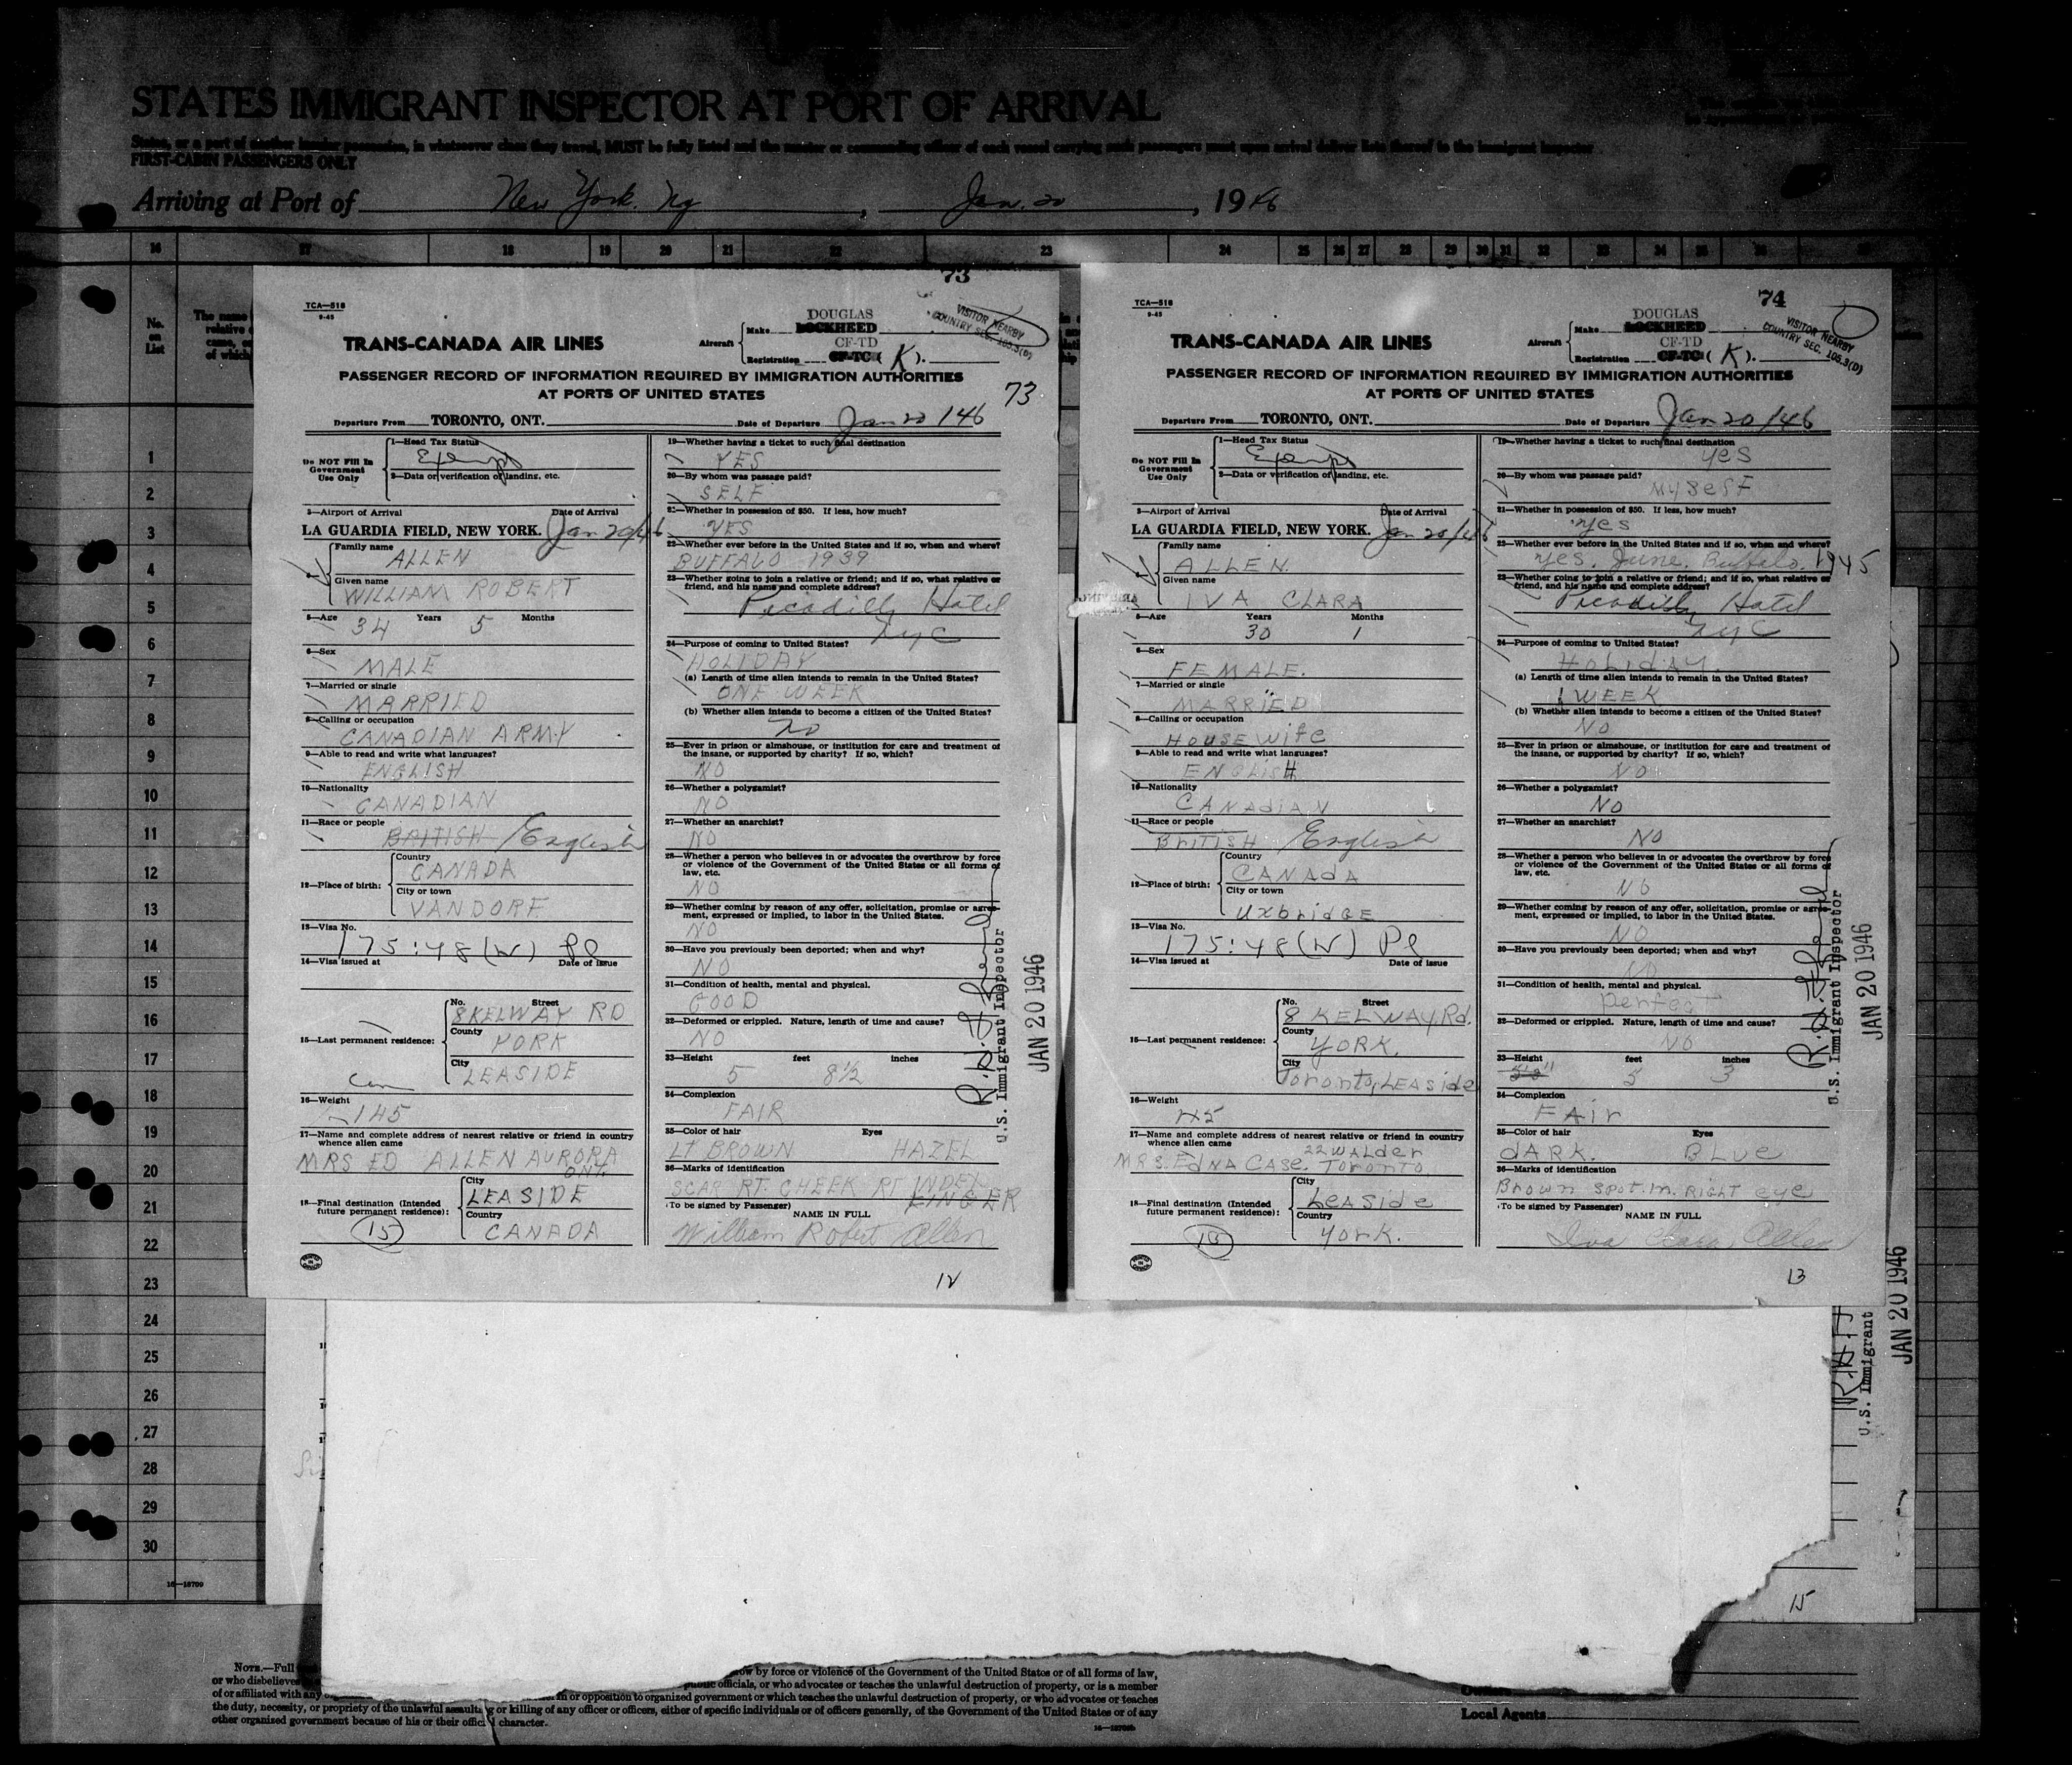 STATES IMMIGRANT INSPECTOR AT PORT OF ARRIVAL
FIRST-CABIN PASSENGERS ONLY
Arriving at Port of New York. Ny, Jan. 20, 1946
16 17 18 19 20 21 22 23 24 25 26 27 28 29 30 31 32 33 34 35 36
No. on List
73
TCA—518
9-45
TRANS-CANADA AIR LINES
Aircraft
Make DOUGLAS LOCKHEED
Registration CF-TD CF-TC (K).
VISITOR NEARBY
COUNTRY SEC. 105.3(D)
PASSENGER RECORD OF INFORMATION REQUIRED BY IMMIGRATION AUTHORITIES
AT PORTS OF UNITED STATES
73
Departure From TORONTO, ONT. Date of Departure Jan 20/46
Do NOT Fill In
Government
Use Only
1—Head Tax Status
Exempt
2—Data or verification of landing, etc.
3—Airport of Arrival Date of Arrival
LA GUARDIA FIELD, NEW YORK. Jan 20/46
Family name
ALLEN
Given name
WILLIAM ROBERT
5—Age 34 Years 5 Months
6—Sex
MALE
7—Married or single
MARRIED
8—Calling or occupation
CANADIAN ARMY
9—Able to read and write what languages?
ENGLISH
10—Nationality
CANADIAN
11—Race or people
BRITISH English
12—Place of birth:
Country
CANADA
City or town
VANDORF
13—Visa No.
175:48 (W) Pl
14—Visa issued at Date of issue
15—Last permanent residence:
No. Street
8 KELWAY RD
County
YORK
City
LEASIDE
16—Weight
145
17—Name and complete address of nearest relative or friend in country
whence alien came
MRS ED ALLEN AURORA
ONT.
18—Final destination (Intended
future permanent residence):
City
LEASIDE
Country
CANADA
15
19—Whether having a ticket to such final destination
YES
20—By whom was passage paid?
SELF
21—Whether in possession of $50. If less, how much?
YES
22—Whether ever before in the United States and if so, when and where?
BUFFALO 1939
23—Whether going to join a relative or friend; and if so, what relative or
friend, and his name and complete address?
Picadilly Hotel
NYC
24—Purpose of coming to United States?
HOLIDAY
(a) Length of time alien intends to remain in the United States?
ONE WEEK
(b) Whether alien intends to become a citizen of the United States?
No
25—Ever in prison or almshouse, or institution for care and treatment of
the insane, or supported by charity? If so, which?
NO
26—Whether a polygamist?
NO
27—Whether an anarchist?
NO
28—Whether a person who believes in or advocates the overthrow by force
or violence of the Government of the United States or all forms of
law, etc.
NO
29—Whether coming by reason of any offer, solicitation, promise or agree-
ment, expressed or implied, to labor in the United States.
NO
30—Have you previously been deported; when and why?
NO
31—Condition of health, mental and physical.
GOOD
32—Deformed or crippled. Nature, length of time and cause?
NO
33—Height feet inches
5 8½
34—Complexion
FAIR
35—Color of hair Eyes
LT BROWN HAZEL
36—Marks of identification
SCAR RT. CHEEK RT INDEX
FINGER
(To be signed by Passenger)
NAME IN FULL
William Robert Allen
12
U.S. Immigrant Inspector
JAN 20 1946
74
TCA—518
9-45
TRANS-CANADA AIR LINES
Aircraft
Make DOUGLAS LOCKHEED
Registration CF-TD CF-TC (K).
VISITOR NEARBY
COUNTRY SEC. 105.3(D)
PASSENGER RECORD OF INFORMATION REQUIRED BY IMMIGRATION AUTHORITIES
AT PORTS OF UNITED STATES
Departure From TORONTO, ONT. Date of Departure Jan 20/46
Do NOT Fill In
Government
Use Only
1—Head Tax Status
Exempt
2—Data or verification of landing, etc.
3—Airport of Arrival Date of Arrival
LA GUARDIA FIELD, NEW YORK. Jan 20/46
Family name
ALLEN.
Given name
IVA CLARA
5—Age Years Months
30 1
6—Sex
FEMALE.
7—Married or single
MARRIED
8—Calling or occupation
HOUSEwife
9—Able to read and write what languages?
ENGLISH
10—Nationality
CANAdiAN
11—Race or people
BriTISH English
12—Place of birth:
Country
CANAdA
City or town
UxbridGE
13—Visa No.
175:48 (W) Pl
14—Visa issued at Date of issue
15—Last permanent residence:
No. Street
8 KELWAY Rd.
County
YORK.
City
Toronto, LEASide
16—Weight
17—Name and complete address of nearest relative or friend in country
whence alien came
22 WALder
MRS. EdNA CASe. Toronto
18—Final destination (Intended
future permanent residence):
City
LeASide
Country
York.
19—Whether having a ticket to such final destination
yes
20—By whom was passage paid?
Myself
21—Whether in possession of $50. If less, how much?
yes
22—Whether ever before in the United States and if so, when and where?
yes. June. Buffalo. 1945
23—Whether going to join a relative or friend; and if so, what relative or
friend, and his name and complete address?
Picadilly Hotel
NYC
24—Purpose of coming to United States?
HoLidAY.
(a) Length of time alien intends to remain in the United States?
1 WEEK
(b) Whether alien intends to become a citizen of the United States?
NO
25—Ever in prison or almshouse, or institution for care and treatment of
the insane, or supported by charity? If so, which?
NO
26—Whether a polygamist?
NO
27—Whether an anarchist?
NO
28—Whether a person who believes in or advocates the overthrow by force
or violence of the Government of the United States or all forms of
law, etc.
NO
29—Whether coming by reason of any offer, solicitation, promise or agree-
ment, expressed or implied, to labor in the United States.
NO
30—Have you previously been deported; when and why?
NO
31—Condition of health, mental and physical.
Perfect
32—Deformed or crippled. Nature, length of time and cause?
NO
33—Height feet inches
5'3" 5 3
34—Complexion
FAir
35—Color of hair Eyes
dARK. BLUe
36—Marks of identification
Brown spot. in. RIGHT eye
(To be signed by Passenger)
NAME IN FULL
Iva Clara Allen
13
U.S. Immigrant Inspector
JAN 20 1946
U.S. Immigrant
JAN 20 1946
15
1
2
3
4
5
6
7
8
9
10
11
12
13
14
15
16
17
18
19
20
21
22
23
24
25
26
27
28
29
30
16—18700
NOTE.—Full
or who disbelieves
ow by force or violence of the Government of the United States or of all forms of law,
public officials, or who advocates or teaches the unlawful destruction of property, or is a member
of or affiliated with any
in or opposition to organized government or which teaches the unlawful destruction of property, or who advocates or teaches
the duty, necessity, or propriety of the unlawful assaulting or killing of any officer or officers, either of specific individuals or of officers generally, of the Government of the United States or of any
other organized government because of his or their official character.
Local Agents